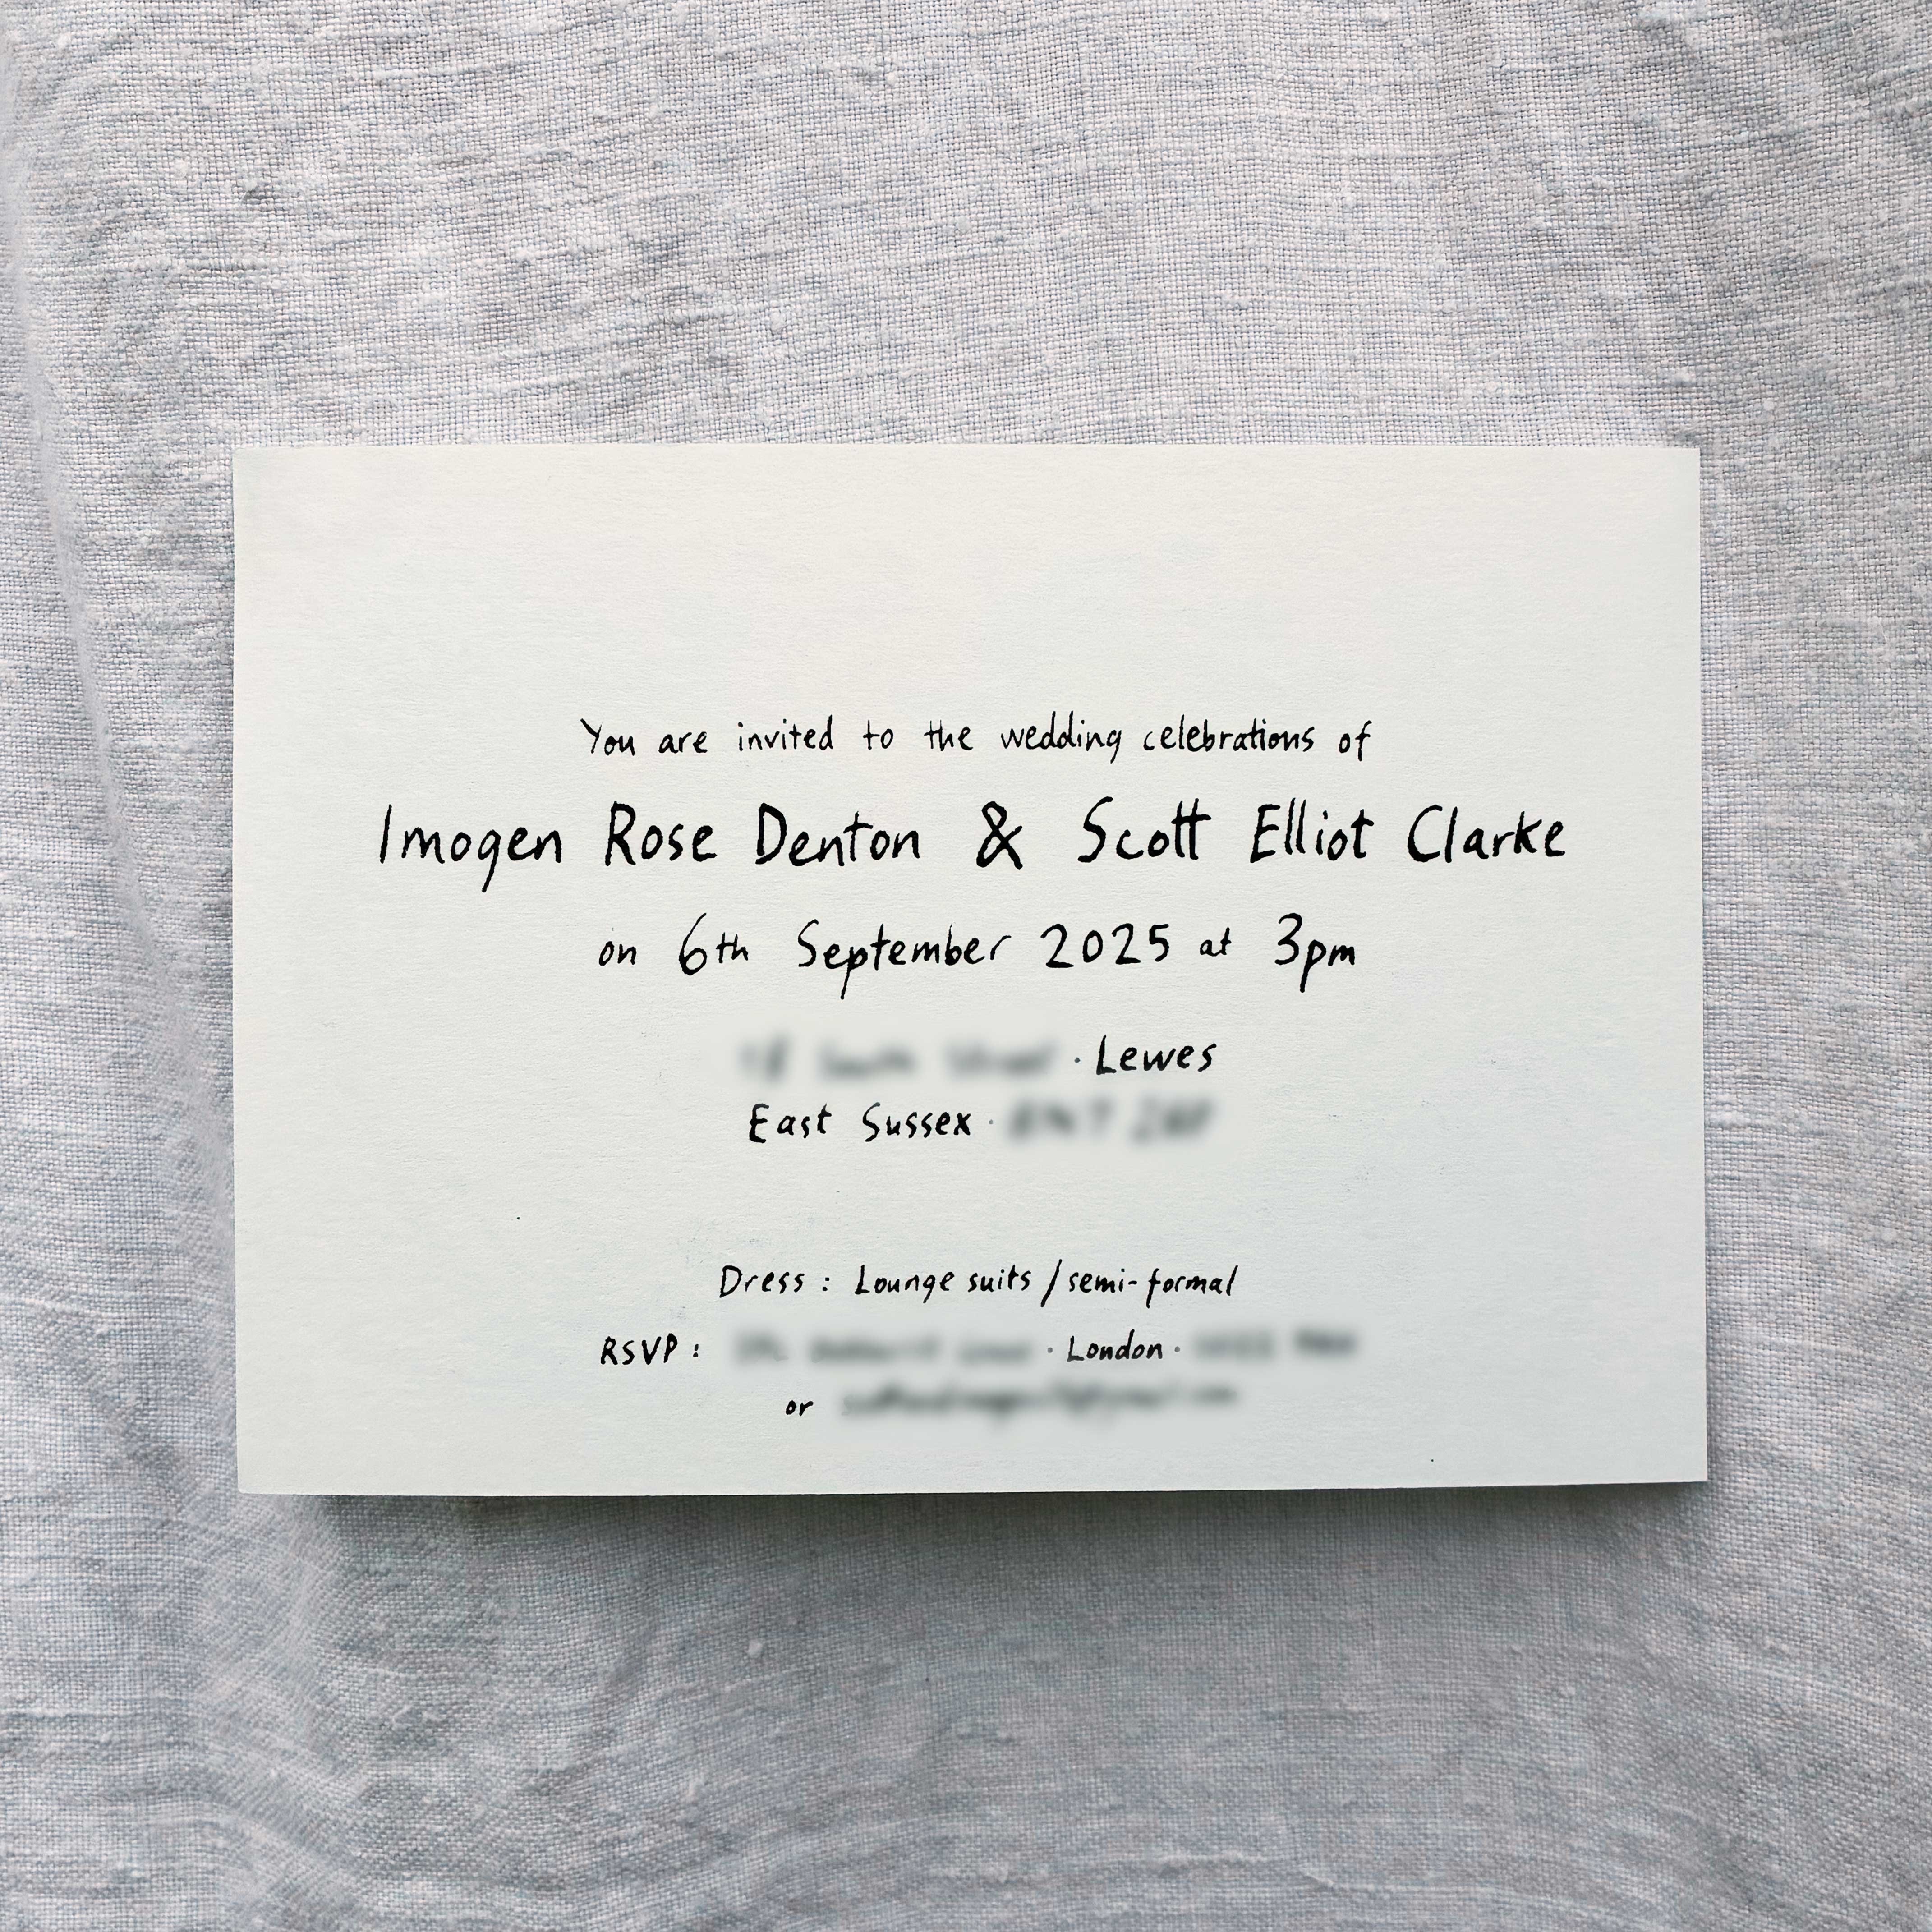 You are invited to the wedding celebrations of
Imogen Rose Denton & Scott Elliot Clarke
on 6th September 2025 at 3pm
· Lewes
East Sussex ·
Dress : Lounge suits / semi-formal
RSVP : · London ·
or